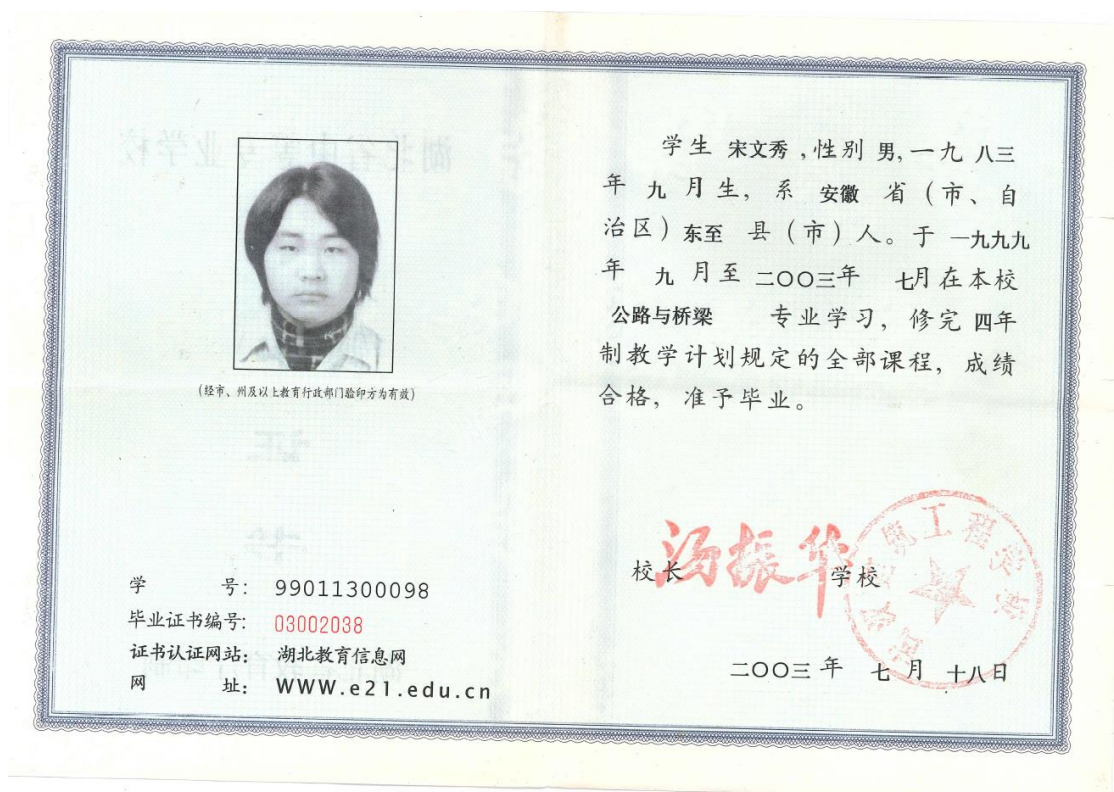 (经市、州及以上教育行政部门验印方为有效)
学 号: 99011300098
毕业证书编号: 03002038
证书认证网站: 湖北教育信息网
网 址: WWW.e21.edu.cn
学生 宋文秀,性别 男,一九 八三
年 九 月生,系 安徽 省(市、自
治区)东至 县(市)人。于 一九九九
年 九 月至 二〇〇三年 七月在本校
公路与桥梁 专业学习,修完 四年
制教学计划规定的全部课程,成绩
合格,准予毕业。
校长 汤振华 学校
二〇〇三 年 七 月 十八日